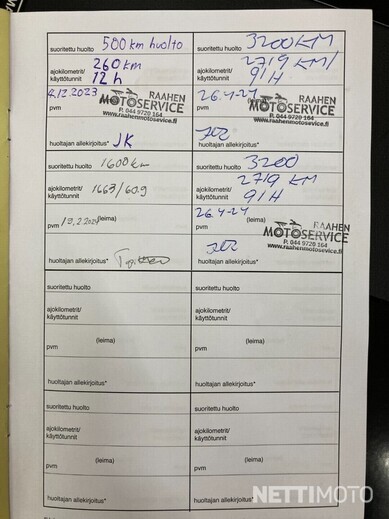 suoritettu huolto 500 km huolto
ajokilometrit/ 260 km
käyttötunnit 12 h
4.12.2023 RAAHEN
MOTOSERVICE
pvm P. 044 9720 164
www.raahenmotoservice.fi
huoltajan allekirjoitus* JK
suoritettu huolto 3200 KM
ajokilometrit/ 2719 KM/
käyttötunnit 91H
26.4-24 RAAHEN
MOTOSERVICE
pvm P. 044 9720 164
www.raahenmotoservice.fi
huoltajan allekirjoitus*
suoritettu huolto 1600 km
ajokilometrit/ 1663/60.9
käyttötunnit
pvm 19.2.2024 (leima)
huoltajan allekirjoitus*
suoritettu huolto 3200
ajokilometrit/ 2719 KM
käyttötunnit 91H
26.4-24 (leima) RAAHEN
MOTOSERVICE
pvm P. 044 9720 164
www.raahenmotoservice.fi
huoltajan allekirjoitus*
suoritettu huolto
ajokilometrit/
käyttötunnit
(leima)
pvm
huoltajan allekirjoitus*
suoritettu huolto
ajokilometrit/
käyttötunnit
(leima)
pvm
huoltajan allekirjoitus*
suoritettu huolto
ajokilometrit/
käyttötunnit
(leima)
pvm
huoltajan allekirjoitus*
suoritettu huolto
ajokilometrit/
käyttötunnit
(leima)
pvm
huoltajan allekirjoitus*
NETTIMOTO